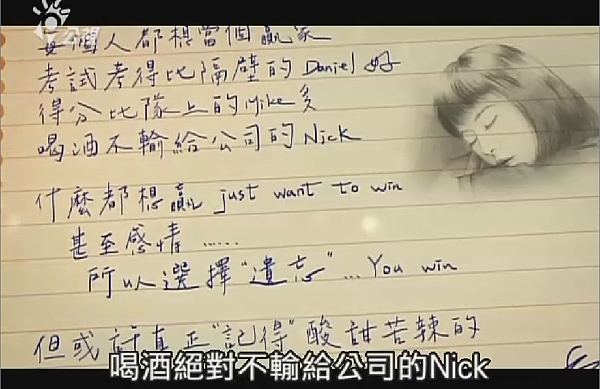 公視
每個人都想當個贏家
考試考得比隔壁的 Daniel 好
得分比隊上的 Mike 多
喝酒不輸給公司的 Nick
什麼都想贏 just want to win
甚至感情......
所以選擇"遺忘"...You win
但或許真正"記得"酸甜苦辣的
喝酒絕對不輸給公司的Nick